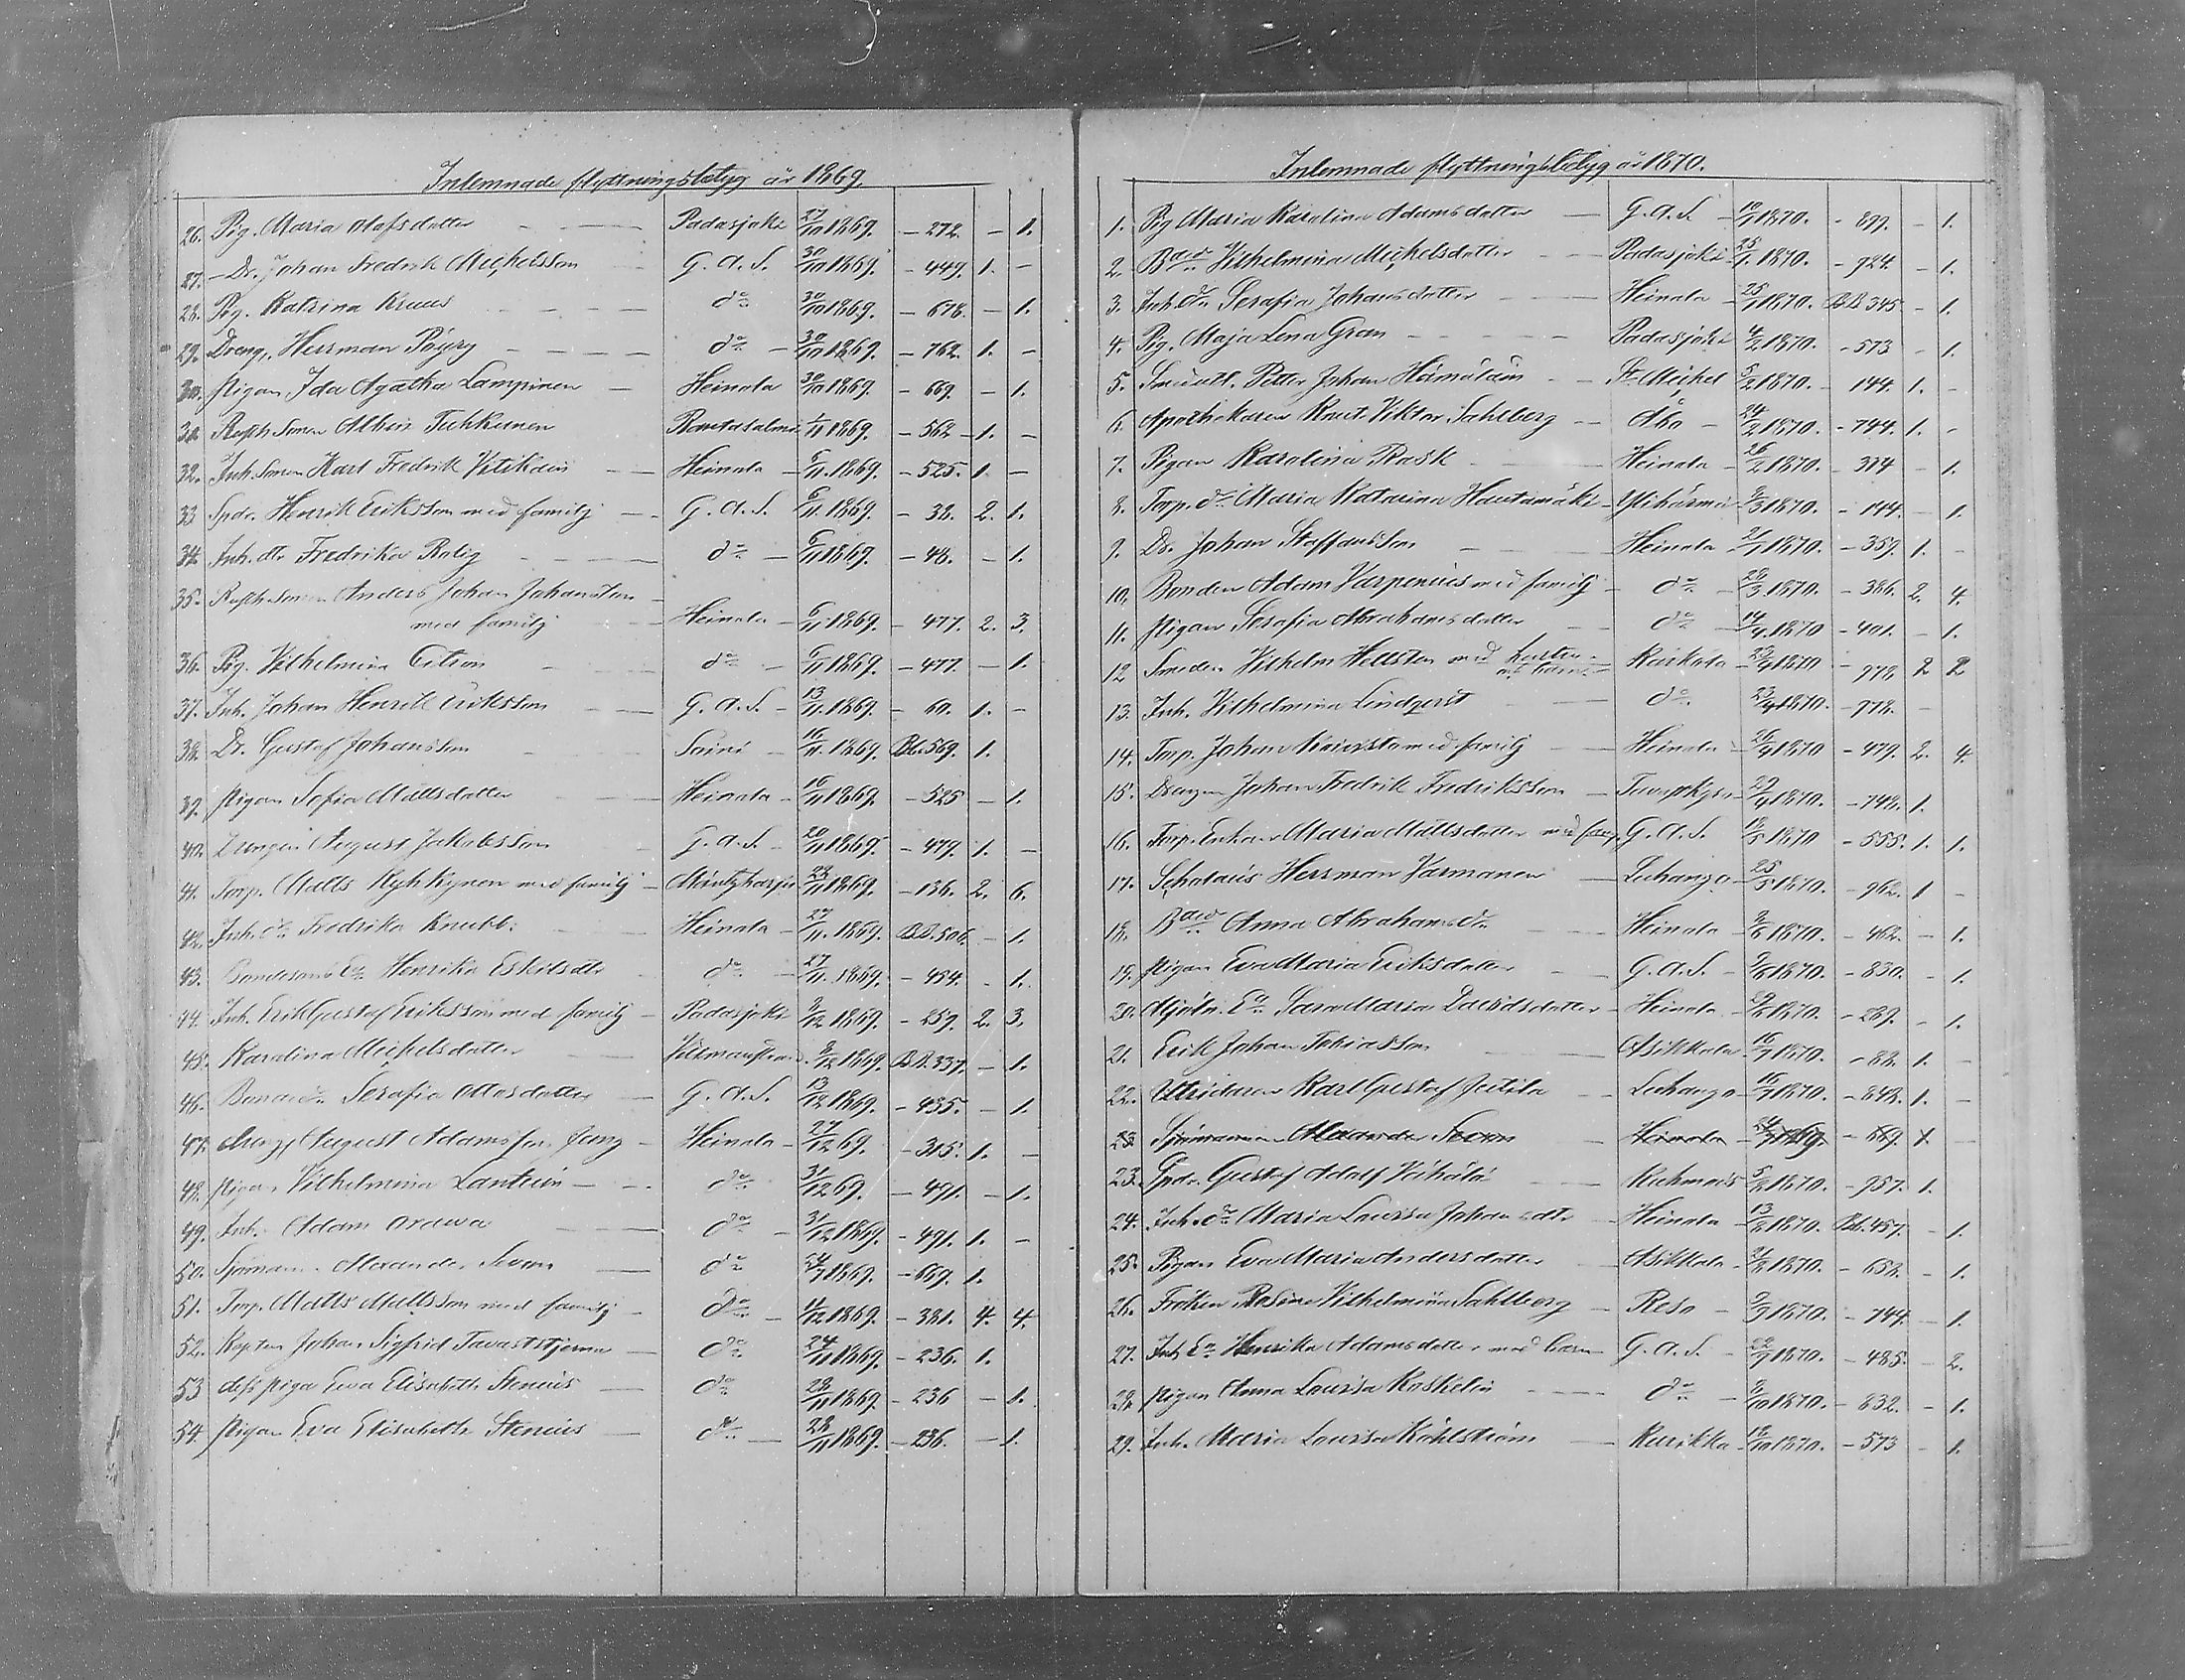 Inlemnade flyttningsbetyg år 1869.
26. Pig. Maria Mafsdotter Padasjoki 27/10 1869. - 272. - 1.
27. Dr. Johan Fredrik Michelsson G. A. S. 30/10 1869. - 449. 1. -
28. Pig. Katrina Kruus do 30/10 1869. - 678. - 1.
29. Dreng. Herrman Pöyry do 30/10 1869. - 762. 1. -
30. Pigan Ida Agatha Lampinen Heinola 30/10 1869. - 69. - 1.
31. Albin Tuhkunen Rantasalmi 1/11 1869. - 562 - 1. -
32. Inh. Sonen Karl Fredrik Heinola 6/11 1869. - 525. 1. -
33 Spdr. Henrik Eriksson med familj G. A. S. 6/11 1869. - 38. 2. 1.
34. Inh. dtr Fredrika Rolig do 6/11 1869. - 48. - 1.
35. Anders Johan Johansson
med familj Heinola 6/11 1869. - 477. 2. 3.
36. Pig. Vilhelmina do 6/11 1869. - 477. - 1.
37. Inh. Johan Henrik Eriksson G. A. S. 13/11 1869. - 60. 1. -
38. Dr. Gustaf Johansson 16/11 1869. Bb. 569. 1.
39. Pigan Sofia Mattsdotter Heinola 16/11 1869. - 525 - 1.
40. Drengen August Jakobsson G. A. S. 20/11 1869. - 479. 1. -
41. Torp. Matts Kyhkynen med familj Mäntyharju 23/11 1869. - 136. 2. 6.
42. Inh. dr Fredrika Knubb. Heinola 27/11 1869. BB. 506. - 1.
43. Bondesons Ea Henrika Eskilsdtr do 27/11 1869. - 454. - 1.
44. Inh. Erik Gustaf Eriksson med familj Padasjoki 2/12 1869. - 259. 2. 3.
45. Karolina Michelsdotter 8/12 1869. BB. 337. - 1.
46. Serafia Mattsdotter G. A. S. 13/12 1869. - 435. - 1.
47. Dreng. August Adamsson Heinola 27/12 69. - 315. 1. -
48. Pigan Vilhelmina do 31/12 69. - 491. - 1.
49. Inh. Adam Orawa do 31/12 1869. - 491. 1. -
50. Sjöman Alexander do 24/7 1869. - 669. 1.
51. Torp. Matts Mattsson med familj do 11/12 1869. - 381. 4. 4.
52. Kapten Johan Sigfrid Tavaststjerna do 24/11 1869. - 236. 1.
53 defs piga Eva Elisabeth Stenius do 28/11 1869. - 236 - 1.
54. Pigan Eva Elisabeth Stenius do 28/11 1869. - 236. - 1.
Inlemnade flyttningsbetyg år 1870.
1. Pig Maria Karolina Adamsdotter G. A. S. 10/1 1870. - 899. - 1.
2. Vilhelmina Michelsdotter Padasjoki 25/1 1870. - 924. - 1.
3. Inh. dr Serafia Johansdotter Heinola 25/1 1870. BB 345 - 1.
4. Pig. Maja Lena Gran Padasjoki 4/2 1870. - 573 - 1.
5. Petter Johan Hämäläin St Michel 5/2 1870. - 144. 1. -
6. Apothekaren Knut Viktor Sahlberg Åbo 24/2 1870. - 744. 1. -
7. Pigan Karolina Rask Heinola 26/2 1870. - 314 - 1.
8. Torp. dr Maria Katarina Hautamäki Ylihärmä 9/3 1870. - 144. - 1.
9. Dr. Johan Staffansson Heinola 1870. - 359. 1. -
10. Bonden Adam Varpenius med familj do 28/3 1870. - 386. 2. 4.
11. Pigan Serafia Abrahamsdotter do 14/4 1870 - 401. - 1.
12 Smeden Vilhelm Hellsten med hustru
o. barn Kärkölä 23/4 1870 - 978. 2 2
13. Inh. Vilhelmina Lindqvist do 23/4 1870. - 978. -
14. Torp. Johan med familj Heinola 26/4 1870 - 479. 2. 4.
15. Drengen Johan Fredrik Fredriksson 29/4 1870. - 748. 1.
16. Torp. Enkan Maria Mattsdotter med fam. G. A. S. 18/5 1870 - 555. 1. 1.
17. Herrman Varmanen Luhanga 25/5 1870. - 962. 1 -
18. Anna Abrahamsdr Heinola 1870. - 462. - 1.
19. Pigan Eva Maria Eriksdotter G. A. S. 1870. - 830. - 1.
20. Mjöln. Ea Sara Maria Davidsdotter Heinola 1870. - 289. - 1.
21. Erik Johan Tobiasson Asikkala 16/7 1870. - 88. 1. -
22. Karl Gustaf Jutila Luhanga 16/7 1870. - 848. 1. -
23. Sjömannen Alexander Heinola 24/7 1869. - 669. 1. -
23. Spdr. Gustaf Adolf 5/8 1870. - 957. 1.
24. Inh. dr Maria Lovisa Johansdtr Heinola 13/8 1870. Bb. 457. - 1.
25. Pigan Eva Maria Andersdotter Asikkala 1870. - 652. - 1.
26. Fröken Rosina Vilhelmina Sahlberg Reso 1870. - 744. - 1.
27. Inh. Ea Henrika Adamsdotter med barn G. A. S. 22/9 1870. - 485. - 2.
28. Pigan Anna Lovisa Koskelin do 1870. - 832. - 1.
29. Inh. Maria Lovisa Kåhlström Kurikka 18/10 1870. - 573 - 1.